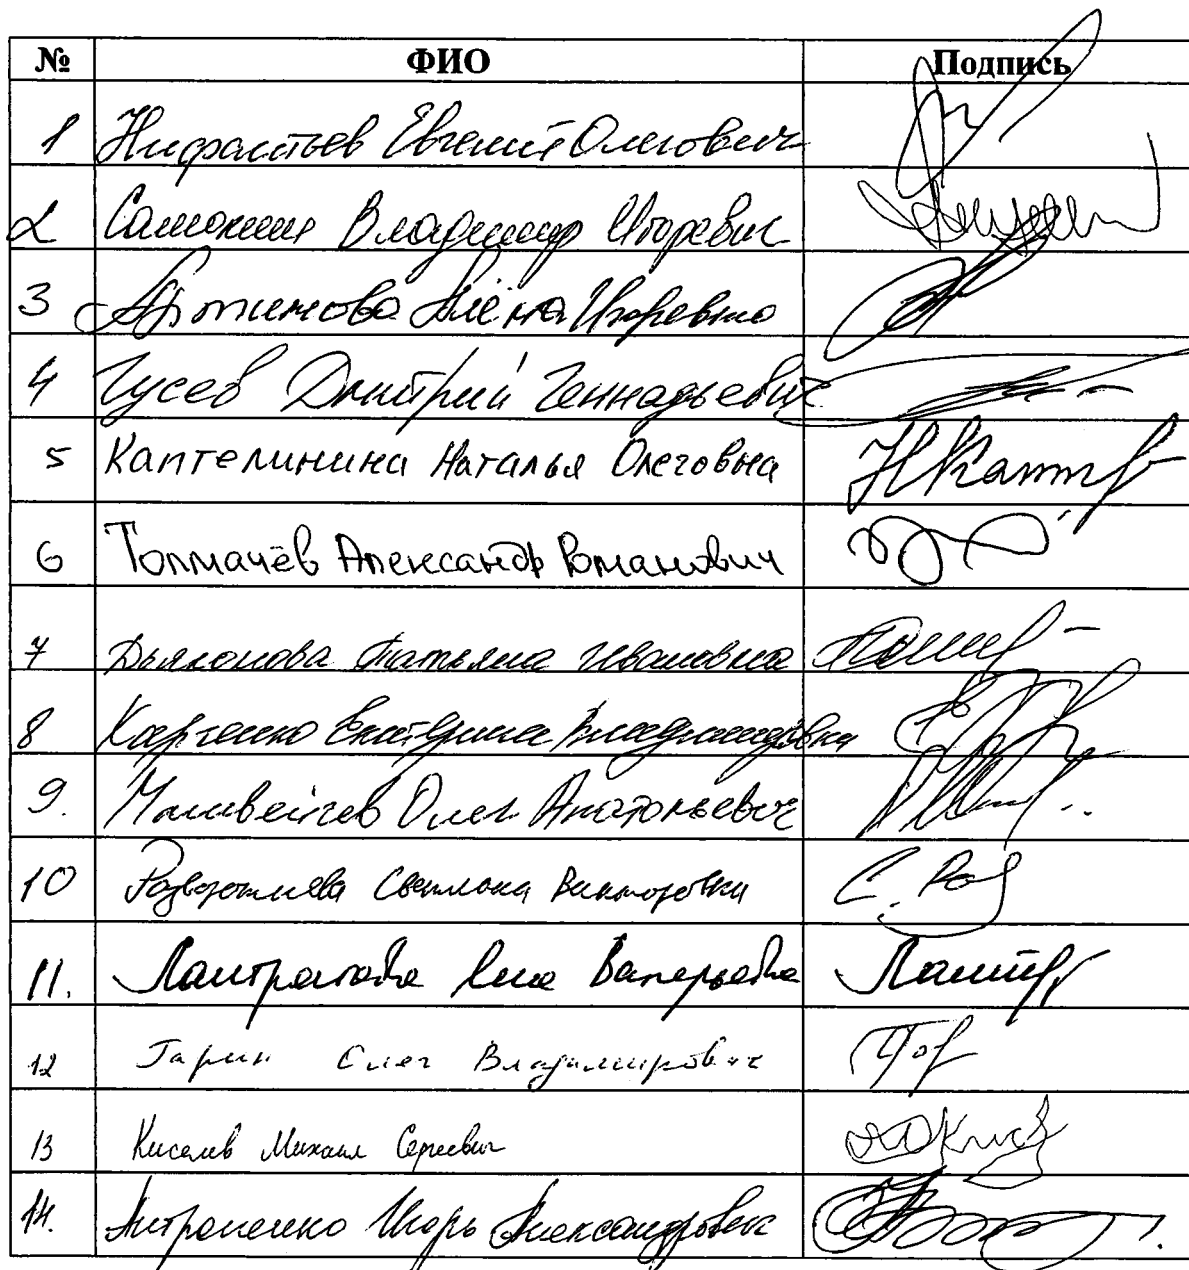 № ФИО Подпись
1 Нифантьев Евгений Олегович
2 Самокиш Владимир Игоревич
3 Аршинова Алёна Игоревна
4 Гусев Дмитрий Геннадьевич
5 Каптелинина Наталья Олеговна
6 Толмачёв Александр Романович
7 Дьяконова Татьяна Ивановна
8 Харченко Екатерина Владимировна
9. Матвейчев Олег Анатольевич
10 Разворотнева Светлана Викторовна С. Раз
11. Лантратова Яна Валерьевна
12 Гарин Олег Владимирович
13 Киселев Михаил Сергеевич
14. Антропенко Игорь Александрович